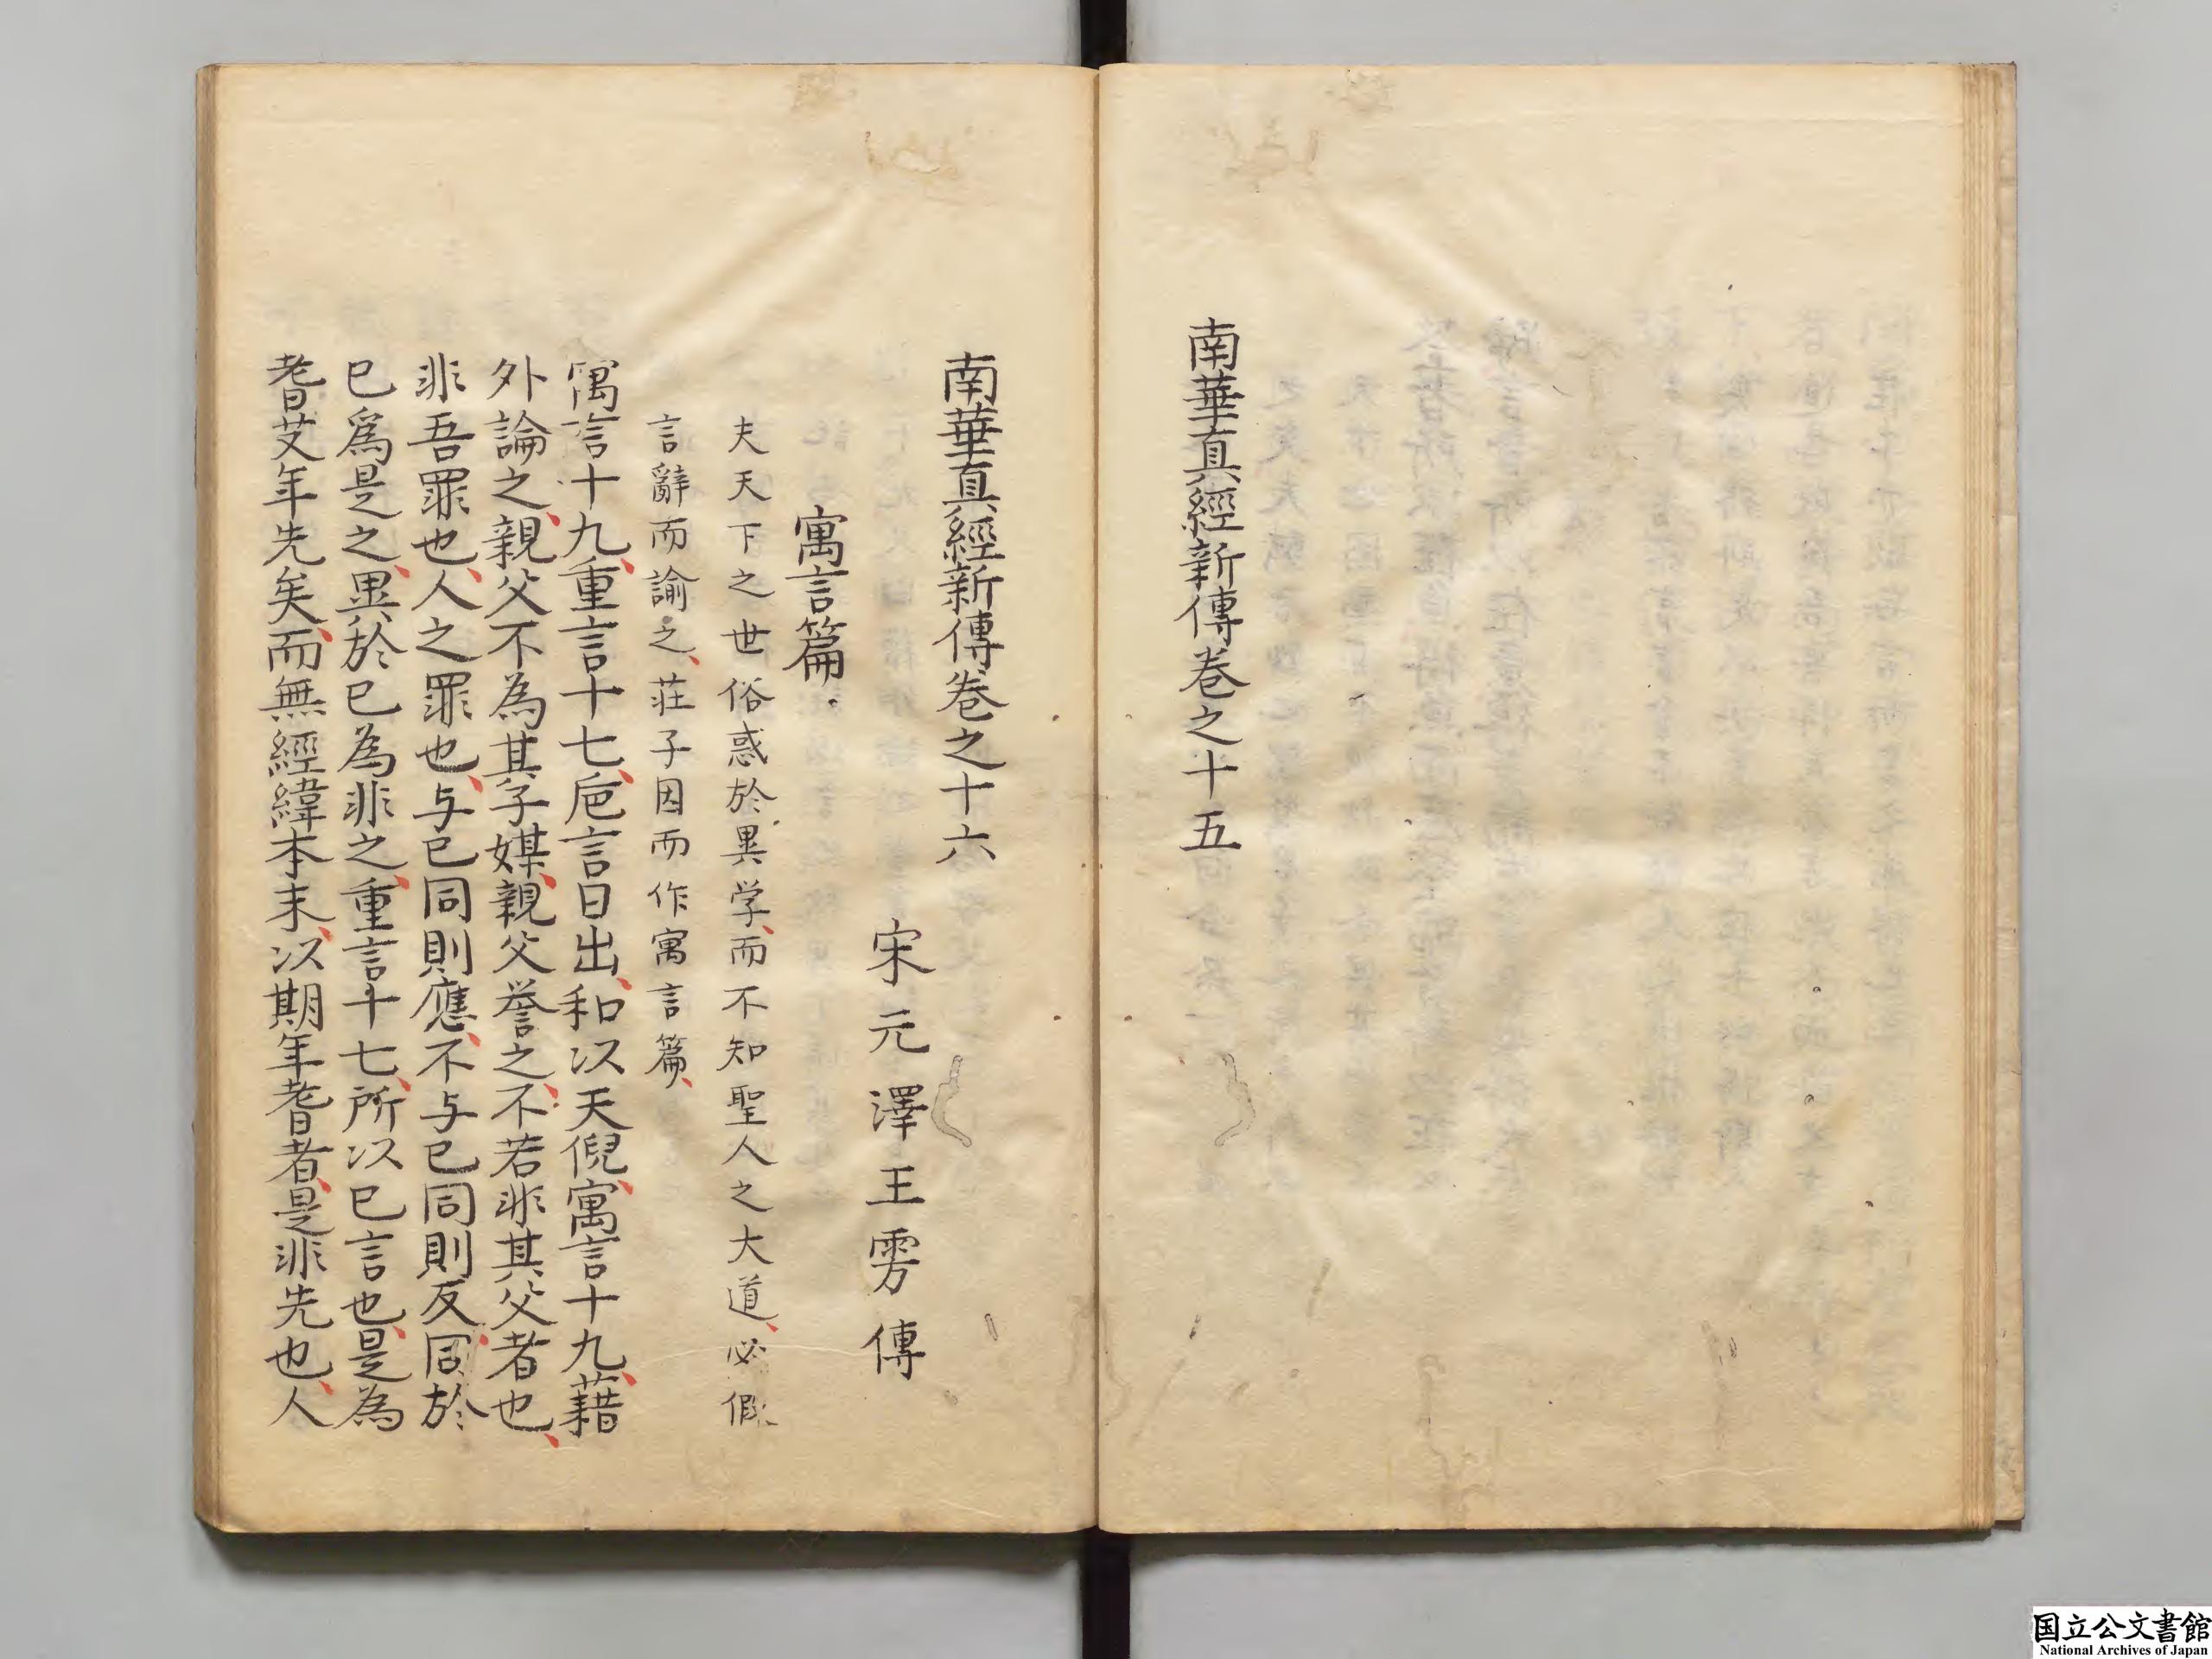 南華真經新傳卷之十五
南華真經新傳卷之十六
宋元澤王雱傳
寓言篇
夫天下之世俗惑於異学而不知聖人之大道必假
言辭而諭之莊子因而作寓言篇
寓言十九重言十七巵言日出和以天倪寓言十九藉
外論之親父不為其子媒親父誉之不若非其父者也
非吾罪也人之罪也与已同則應不与已同則反同於
已爲是之異於已為非之重言十七所以已言也是為
耆艾年先矣而無經緯本末以期年耆者是非先也人
国立公文書館
National Archives of Japan